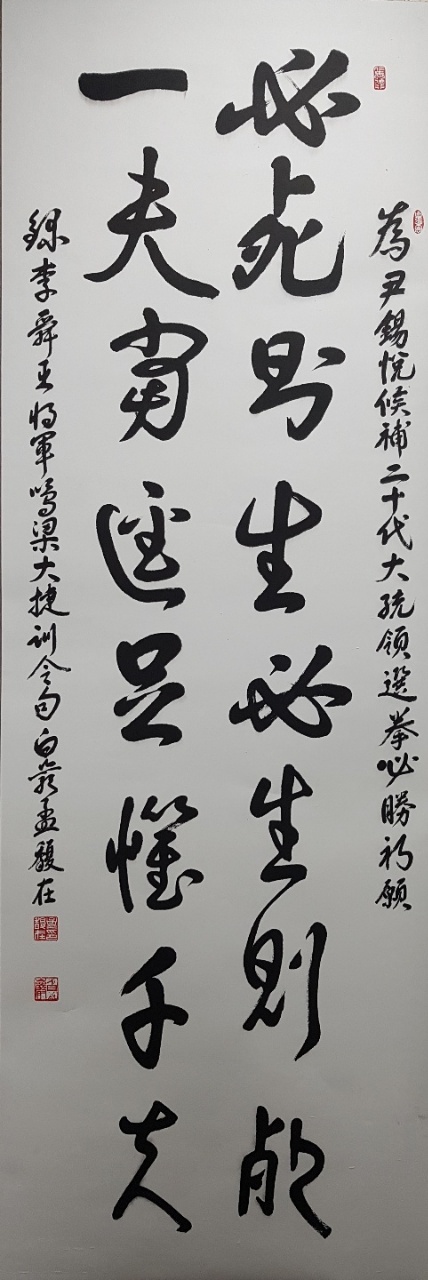 為尹錫悅候補二十代大統領選擧必勝祈願
必死則生必生則死
一夫當逕足懼千夫
錄李舜臣將軍鳴梁大捷訓令句 白 孟馥在